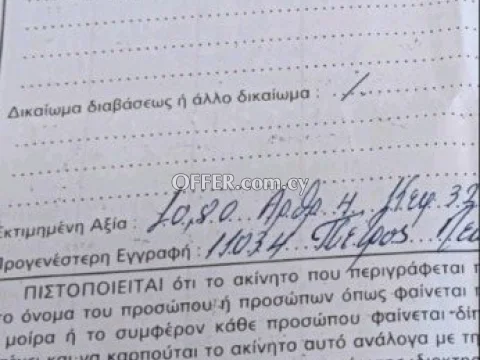 Δικαίωμα διαβάσεως ή άλλο δικαίωμα :
OFFER.com.cy
Εκτιμημένη Αξία : £0,80 Αρθρ. 4
Προγενέστερη Εγγραφή : 11034 Πέτρος
ΠΙΣΤΟΠΟΙΕΙΤΑΙ ότι το ακίνητο που περιγράφεται
το όνομα του προσώπου ή προσώπων όπως φαίνεται
μοίρα ή το συμφέρον κάθε προσώπου φαίνεται
και να καρπούται το ακίνητο αυτό ανάλογα με